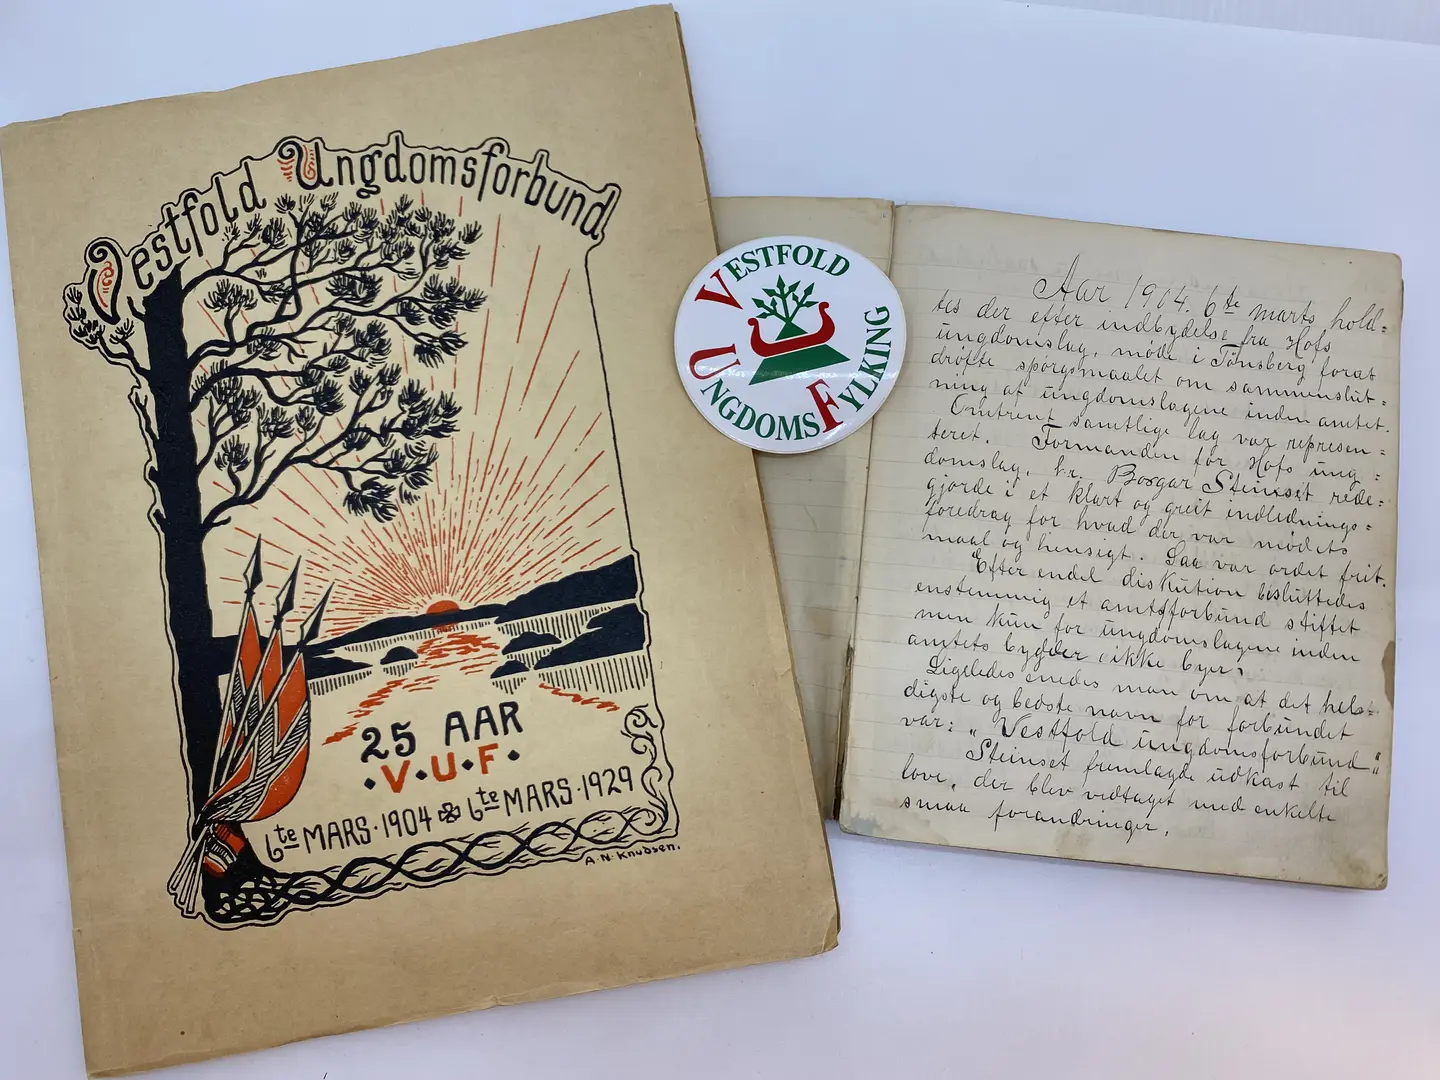 Vestfold Ungdomsforbund
25 AAR
·V·U·F·
6te MARS·1904 6te MARS·1929
A·N·Knudsen.
VESTFOLD
UNGDOMSFYLKING
Aar 1904. 6te marts hold=
tes der efter indbydelse fra Hofs
ungdomslag, møde i Tønsberg forat
drøfte spørgsmaalet om sammenslut=
ning af ungdomslagene inden amtet.
Omtrent samtlige lag var represen=
teret. Formanden for Hofs ung=
domslag, hr. Borgar Steinset rede=
gjorde i et klart og greit indlednings=
foredrag for hvad der var mødets
maal og hensigt. Saa var ordet frit.
Efter endel diskution besluttedes
enstemmig et amtsforbund stiftet
men kun for ungdomslagene inden
amtets bygder (ikke byer)
Ligeledes enedes man om at det hel=
digste og bedste navn for forbundet
var: „Vestfold ungdomsforbund“
Steinset fremlagde udkast til
love, der blev vedtaget med enkelte
smaa forandringer.